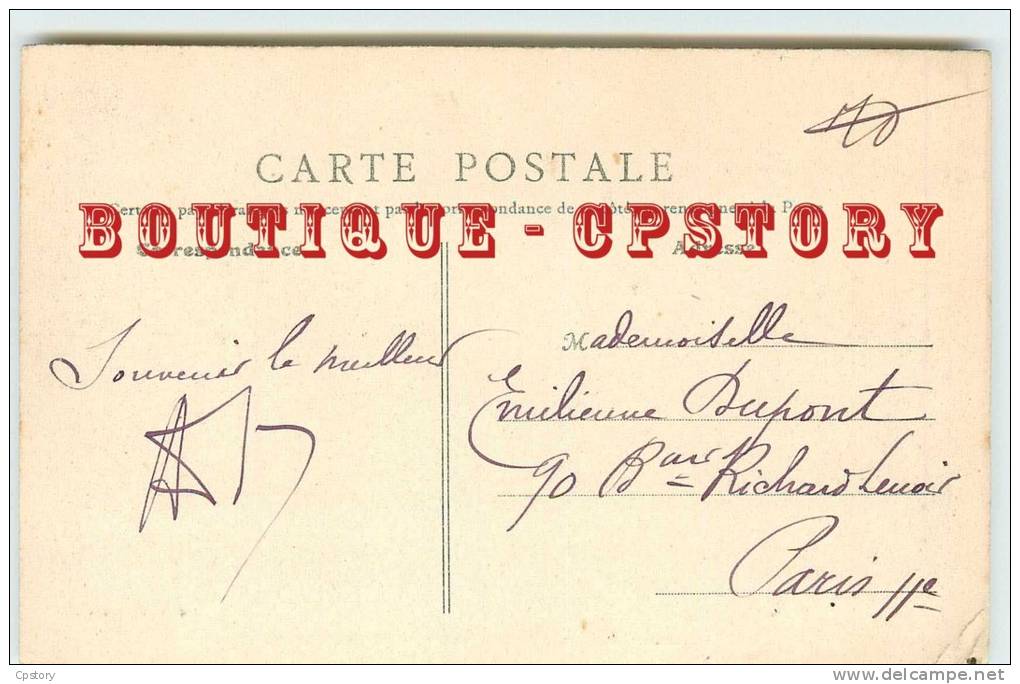 CARTE POSTALE
BOUTIQUE - CPSTORY
Correspondance
Adresse
Souvenir le meilleur
Mademoiselle
Emilienne Dupont
90 Bard Richard Lenoir
Paris 11e
Cpstory
delcampe.net